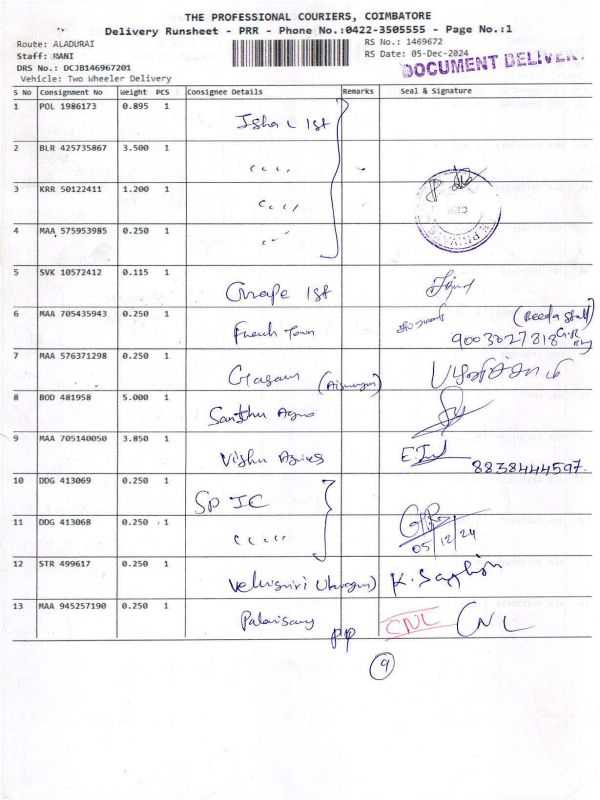 THE PROFESSIONAL COURIERS, COIMBATORE
Delivery Runsheet - PRR - Phone No.:0422-3505555 - Page No.:1
Route: ALADURAI
RS No.: 1469672
Staff: MANI
RS Date: 05-Dec-2024
DRS No.: DCJB146967201
DOCUMENT DELIVERY
Vehicle: Two Wheeler Delivery
S No Consignment No Weight PCS Consignee Details Remarks Seal & Signature
1 POL 1986173 0.895 1
2 BLR 425735867 3.500 1
3 KRR 50122411 1.200 1
4 MAA 575953985 0.250 1
5 SVK 10572412 0.115 1 Grape 1st
6 MAA 705435943 0.250 1 French Town
9003027818
7 MAA 576371298 0.250 1
8 BOD 481958 5.000 1
9 MAA 705140050 3.850 1 Vishnu
8838444597
10 DDG 413069 0.250 1 SP IC
11 DDG 413068 0.250 1
05/12/24
12 STR 499617 0.250 1
13 MAA 945257190 0.250 1 Palanisamy PP CNL CNL
9